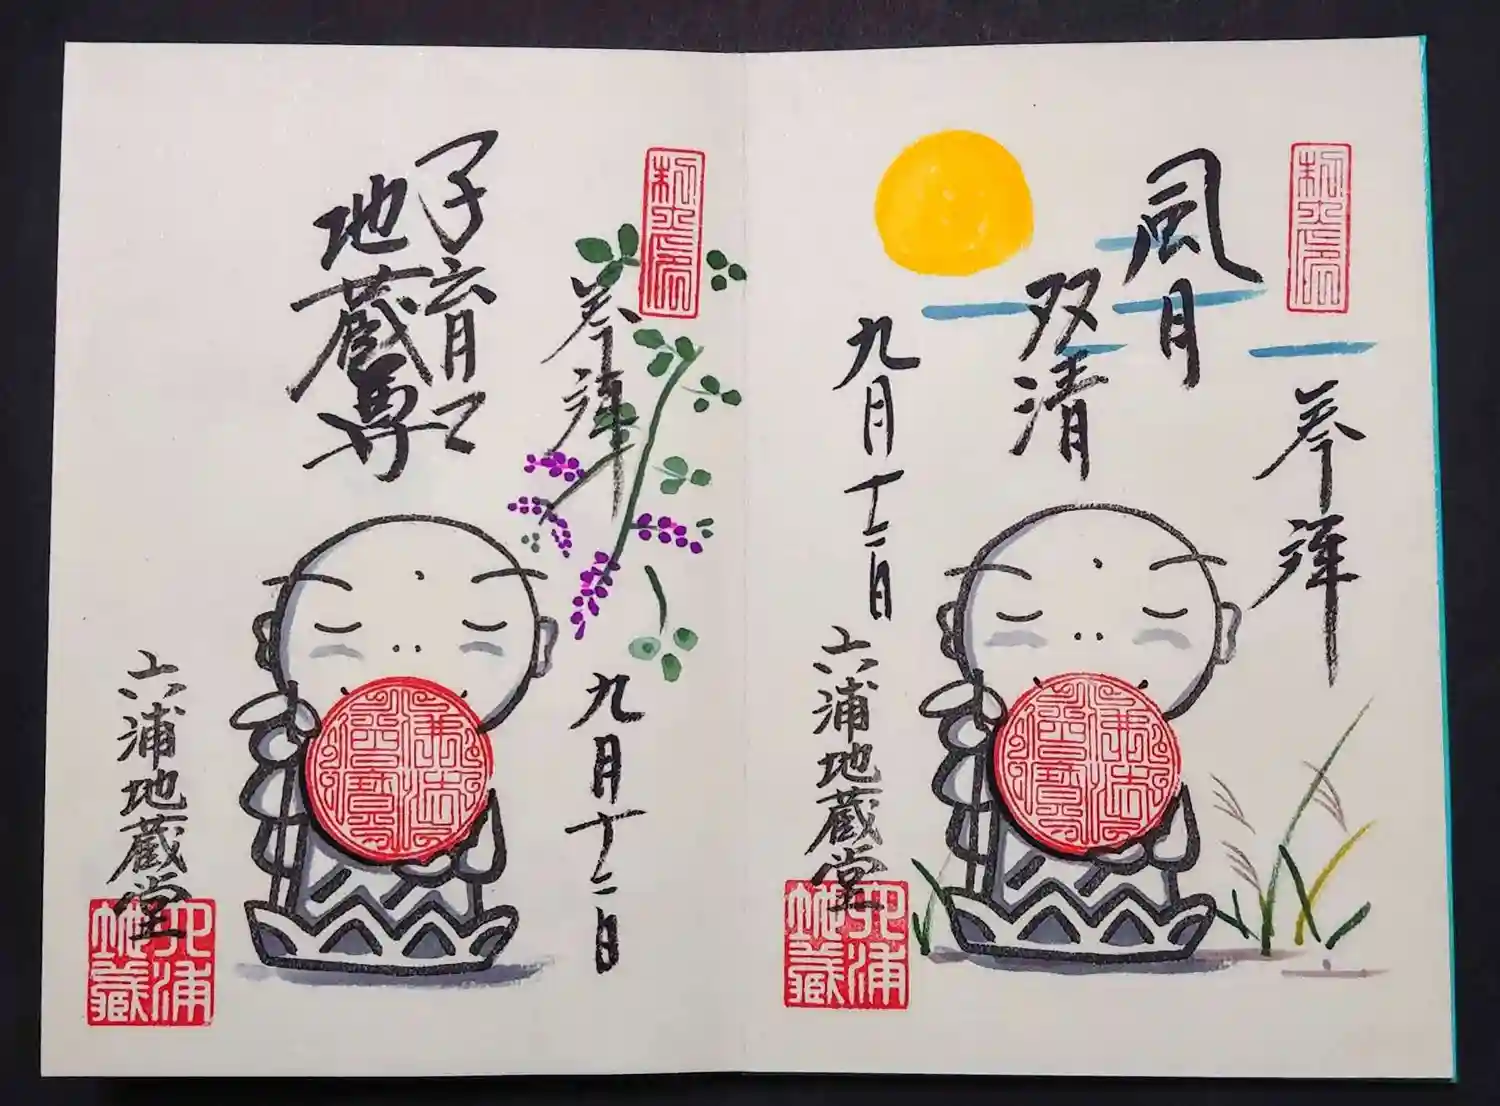 奉拝
風月
双清
九月十二日
佛法僧寶
六浦地蔵堂
六浦
地藏
奉拝
子育て
地蔵尊
九月十二日
佛法僧寶
六浦地蔵堂
六浦
地藏